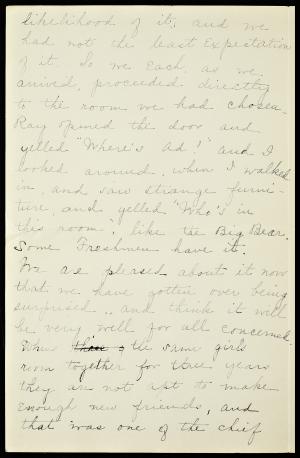 likelihood of it; and we
had not the least Expectation
of it. So we Each, as we
arrived, proceeded directly
to the room we had chosen.
Ray opened the door and
yelled "Where's Ad?" and I
looked around, when I walked
in, and saw strange furni-
ture, and yelled "Who's in
this room", like the Big Bear.
Some Freshmen have it.
We are pleased about it now
that we have gotten over being
surprised, and think it will
be very well for all concerned.
When the same girls
room together for three years
they are not apt to make
Enough new friends, and
that was one of the chief